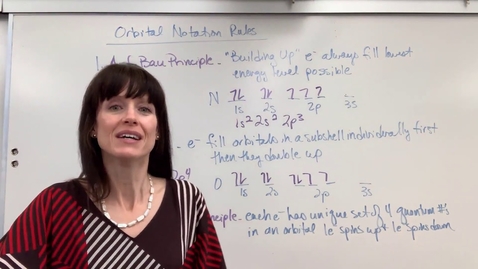 Orbital Notation Rules
1. Aufbau Principle - "Building Up" e⁻ always fill lowest
energy level possible
N 1s 2s 2p 3s
1s² 2s² 2p³
- e⁻ fill orbitals in a subshell individually first
then they double up
2p⁴ O 1s 2s 2p 3s
each e⁻ has unique set of 4 quantum #s
in an orbital 1e⁻ spins up + 1e⁻ spins down